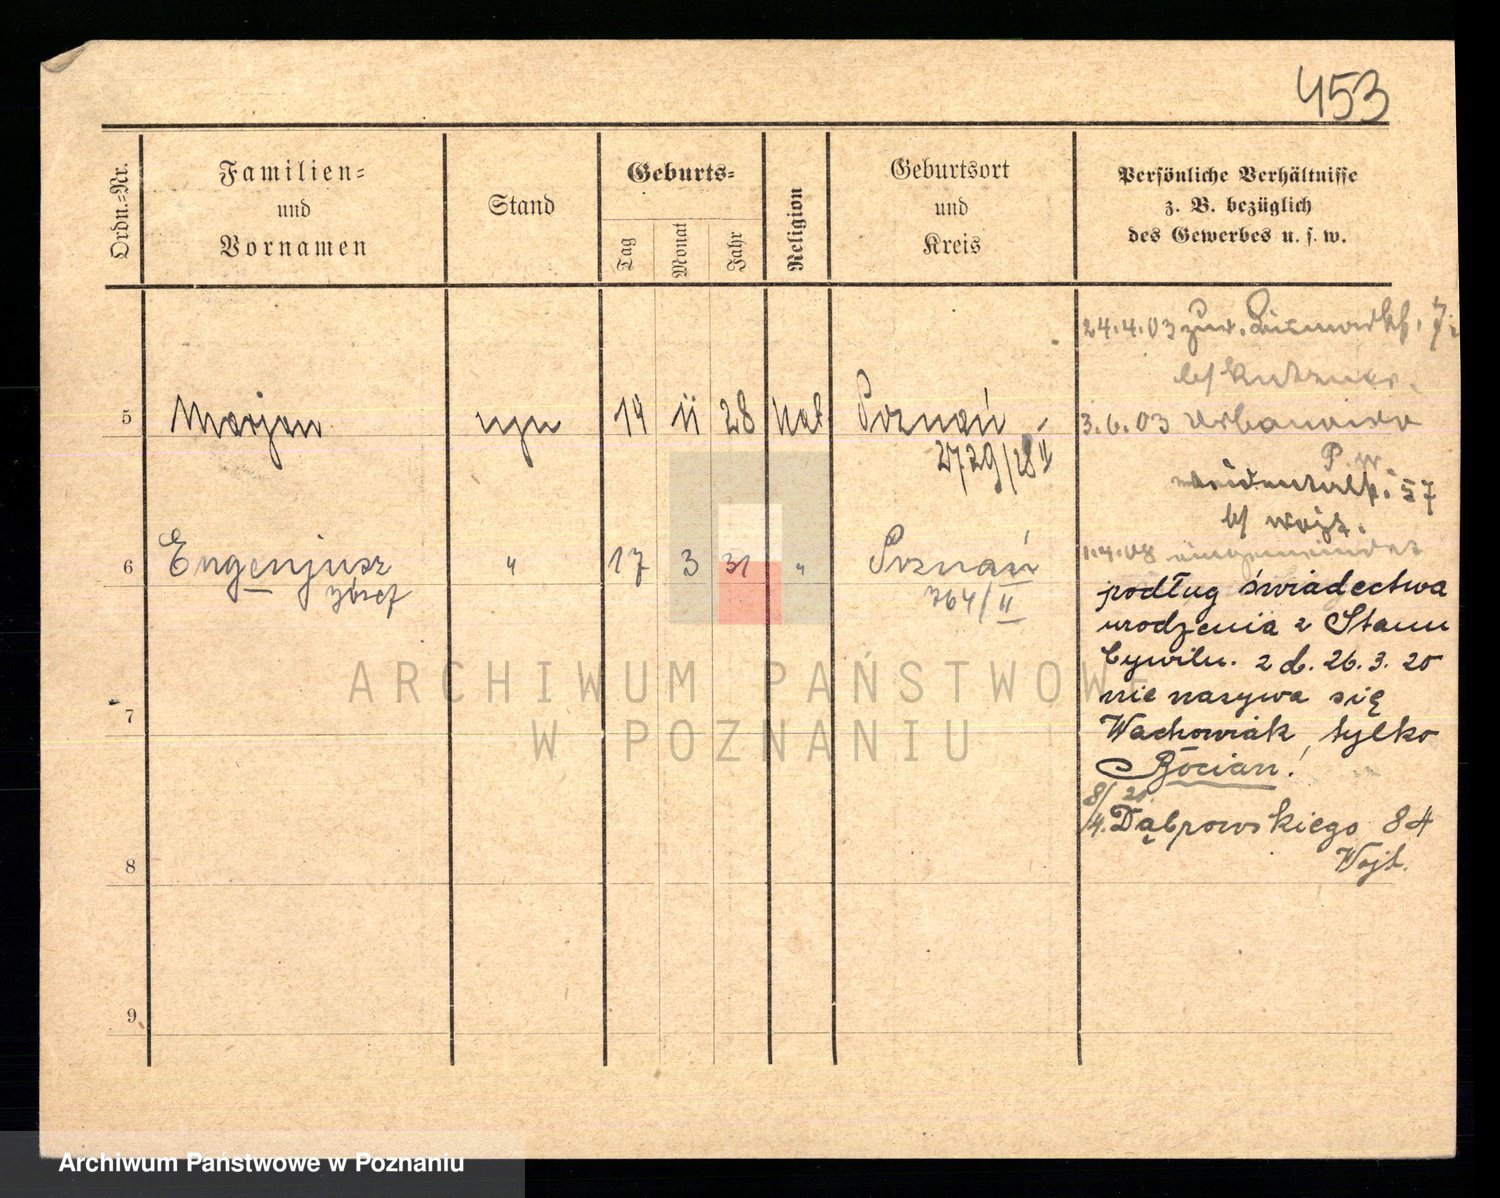 453
Ordn.-Nr.
Familien-
und
Vornamen
Stand
Geburts-
Tag
Monat
Jahr
Religion
Geburtsort
und
Kreis
Persönliche Verhältnisse
z. B. bezüglich
des Gewerbes u. s. w.
24.4.03
5 Marjan syn 14 11 28 kat Poznań
2729/28 II
3.6.03
57
b/ Wojt.
6 Eugenjusz " 17 3 31 " Poznań
Józef
764/II
1.4.08 eingemeindet
podług świadectwa
urodzenia z Stanu
Cywiln. z d. 26.3.20
nie nazywa się
Wachowiak, tylko
Bocian!
8/4. 20 Dąbrowskiego 84
Wojt.
7
8
9
ARCHIWUM PAŃSTWOWE
W POZNANIU
Archiwum Państwowe w Poznaniu